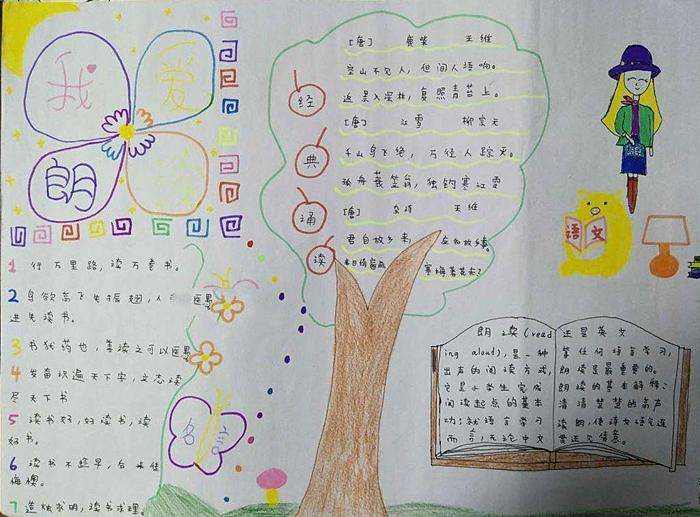 我
爱
朗
经
典
诵
读
[唐] 鹿柴 王维
空山不见人，但闻人语响。
返景入深林，复照青苔上。
[唐] 江雪 柳宗元
千山鸟飞绝，万径人踪灭。
孤舟蓑笠翁，独钓寒江雪
[唐] 杂诗 王维
君自故乡来
来日绮窗前
语文
1 行万里路，读万卷书。
2 鸟欲高飞先振翅，人
进先读书。
3 书犹药也，善读之可以医愚
4 发奋识遍天下字，立志读
尽天下书
5 读书好，好读书，读
好书。
6 读书不趁早，后来徒
悔懊。
7 造烛求明，读书求理。
名
朗读(read
ing aloud)，是一种
出声的阅读方式，
它是小学生完成
阅读起点的基本
功；就语言学习
而言，无论中文
还是英文
等任何语言学习，
朗读是最重要的。
朗读的基本解释：
清清楚楚的高声